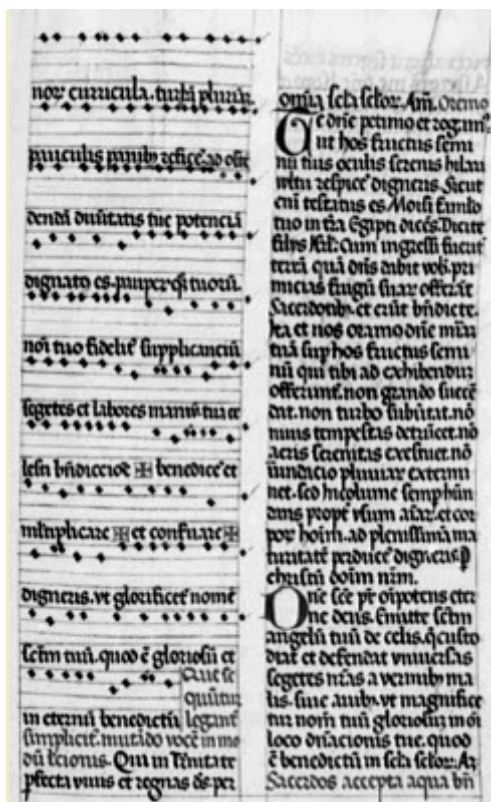 nor curricula. turbā plurīar
pauculis panibȝ reficeˉ ad oste
dendā diuītatis tue potenciā
dignatꝰ es. pauperꝙ tuorū.
noī tuo fideliˉt supplicanciū
segetes et labores manuū tua ce
lesti bn̄diccioē ✠ benediceˉ et
ml̄tiplicare ✠ et conseruare ✠
digneris. vt glorificeˉt nomē
scm̄ tuū. quod ē gloriosū et
que se
quūtur
in eternū benedictū legant
simplicit̄. mutādo vocē in mo
dū lecionis. Qui in Trinitate
ꝑfecta viuis et regnas dˉs per
omīa scl̄a sclōr. Am̄. Oremꝰ
Te dn̄e petimꝰ et rogamꝰ.
ut hos fructus semi
nū tuis oculis serenis hilari
vultu respiceˉ digneris. Sicut
enī testatus es Moisi famlo
tuo in tr̄a Egipti diceˉs. Dicite
filiis Isrl̄. Cum ingressi fueriˉt
terrā quā dn̄s dabit vobˉ. pri
micias frugū suar̄ offerāt
Sacerdotibȝ. et erūt bn̄dicte.
Ita et nos oramꝰ dn̄e mīaˉ
tuā sup hos fructus semi
nū qui tibi ad exhibendū
offerunt̄. non grando succeˉ
dat. non turbo subūtat. nō
nimis tempestas detruncet. nō
aeris serenitas exestuet. nō
inundacio pluuiar̄ extermi
net. sed incolume semp habun
dans propt̄ vsum aīar̄. et cor
por̄ hoīm. ad plenissimā ma
turitatē perduceˉ digneris. ꝑ
christū doīm nr̄m.
Dn̄e scē pr̄ oīpotens eter
ne deus. Emitte scm̄
angelū tuū de celis. q̄ custo
diat et defendat vniuersas
segetes nr̄as a vermibȝ ma
lis. siue auibȝ. vt magnifice
tur nomē tuū gloriosum in oī
loco dn̄acionis tue. quod
ē benedictū in scl̄a sclōr. Am̄
Sacerdos accepta aqua bn̄